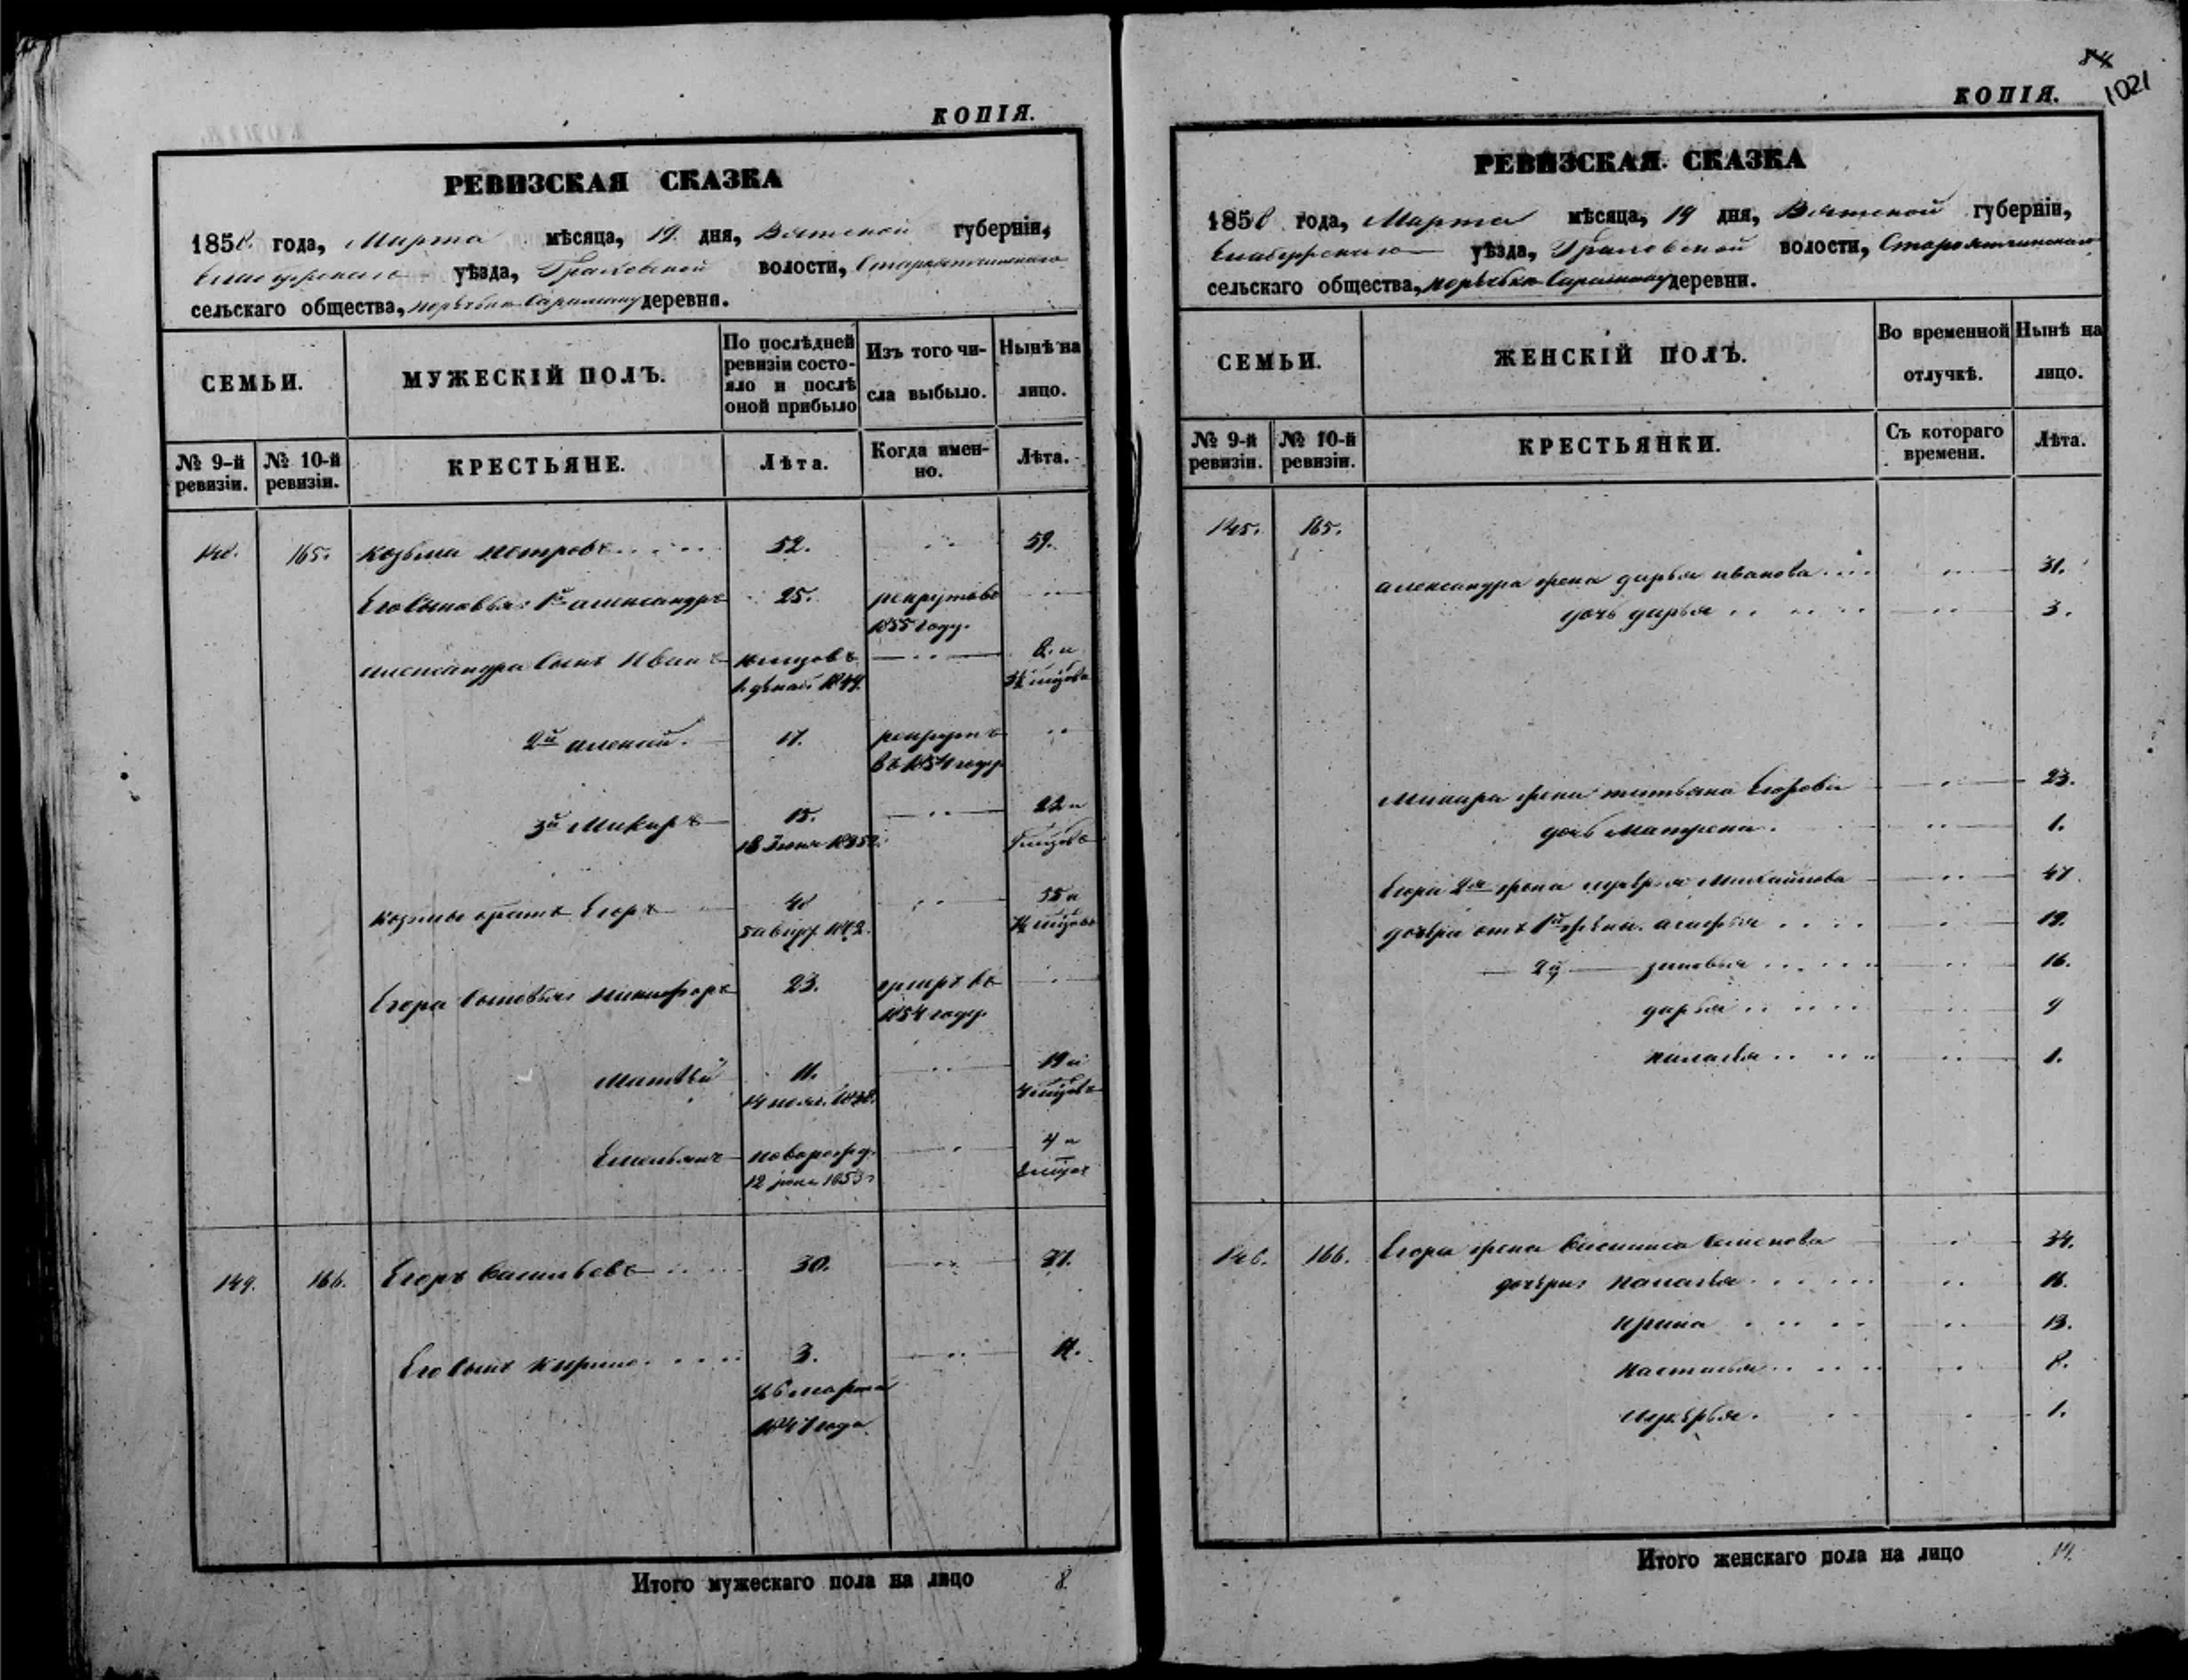 КОПІЯ.
РЕВИЗСКАЯ СКАЗКА
1858 года, Марта мѣсяца, 19 дня, Вятской губерніи,
уѣзда, Граховской волости,
сельскаго общества, деревня.
СЕМЬИ.
МУЖЕСКІЙ ПОЛЪ.
По послѣдней ревизіи состояло и послѣ оной прибыло
Изъ того числа выбыло.
Нынѣ на лицо.
№ 9-й ревизіи.
№ 10-й ревизіи.
КРЕСТЬЯНЕ.
Лѣта.
Когда именно.
Лѣта.
165. Козьма Петровъ 52. 59.
Его сыновья: 1й Александръ 25. рекрутовъ
1855 году.
Александра сынъ Иванъ 8 и
2й Алексѣй. 17. рекрутъ
въ 1854 году
3й Макаръ 15. 22 и
Козьмы братъ Егоръ 48 55 и
Егора сыновья: Никифоръ 23. умеръ въ
1854 году.
Матвѣй 11. 19 и
4 мѣсяцовъ
Емельянъ новорожд. 4 и
12 1853
149. 166. Егоръ Васильевъ 30.
Его сынъ 3. 11.
26 марта
1847 года
Итого мужескаго пола на лицо 8.
КОПІЯ.
84
1021
РЕВИЗСКАЯ СКАЗКА
1858 года, Марта мѣсяца, 19 дня, Вятской губерніи,
Елабужскаго уѣзда, Граховской волости,
сельскаго общества, деревни.
СЕМЬИ.
ЖЕНСКІЙ ПОЛЪ.
Во временной отлучкѣ.
Нынѣ на лицо.
№ 9-й ревизіи.
№ 10-й ревизіи.
КРЕСТЬЯНКИ.
Съ котораго времени.
Лѣта.
145. 165.
Александра жена Дарья Иванова 31.
дочь Дарья 3.
Макара жена Татьяна Егорова 23.
дочь Матрена. 1.
Егора 2я жена Лукерья Михайлова 47
дочери отъ 1й жены. Агафья 19.
2й Зиновья 16.
Дарья 9
Палагья 1.
146. 166. Егора жена Василиса Семенова 34.
дочери: Палагья
Ирина 13.
Настасья 8.
Лукерья. 1.
Итого женскаго пола на лицо 14.